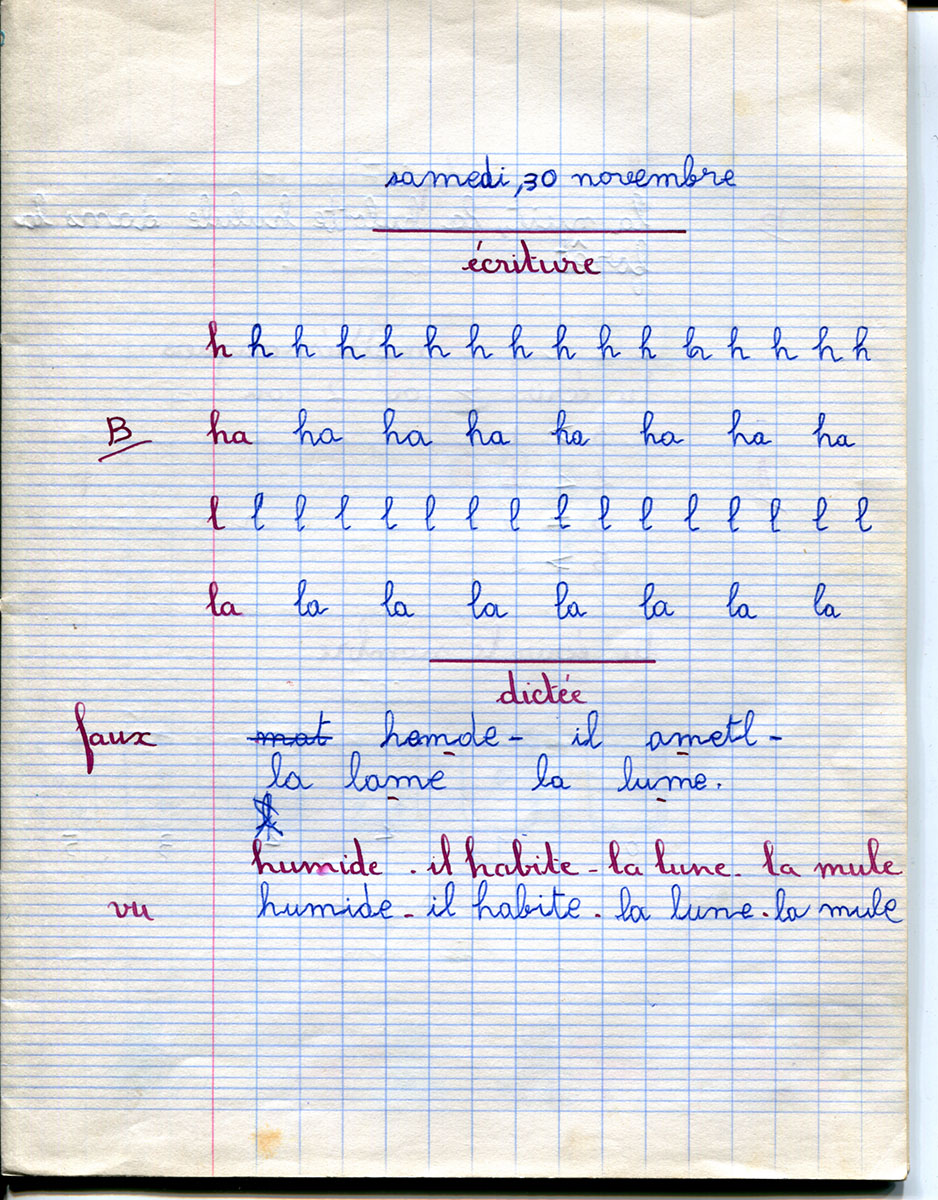 samedi, 30 novembre
écriture
h h h h h h h h h h h h h h h h
B ha ha ha ha ha ha ha ha
l l l l l l l l l l l l l l l l
la la la la la la la la
dictée
faux mat hemde - il ametl -
la lame la lume.
humide . il habite - la lune . la mule
vu humide - il habite . la lune . la mule